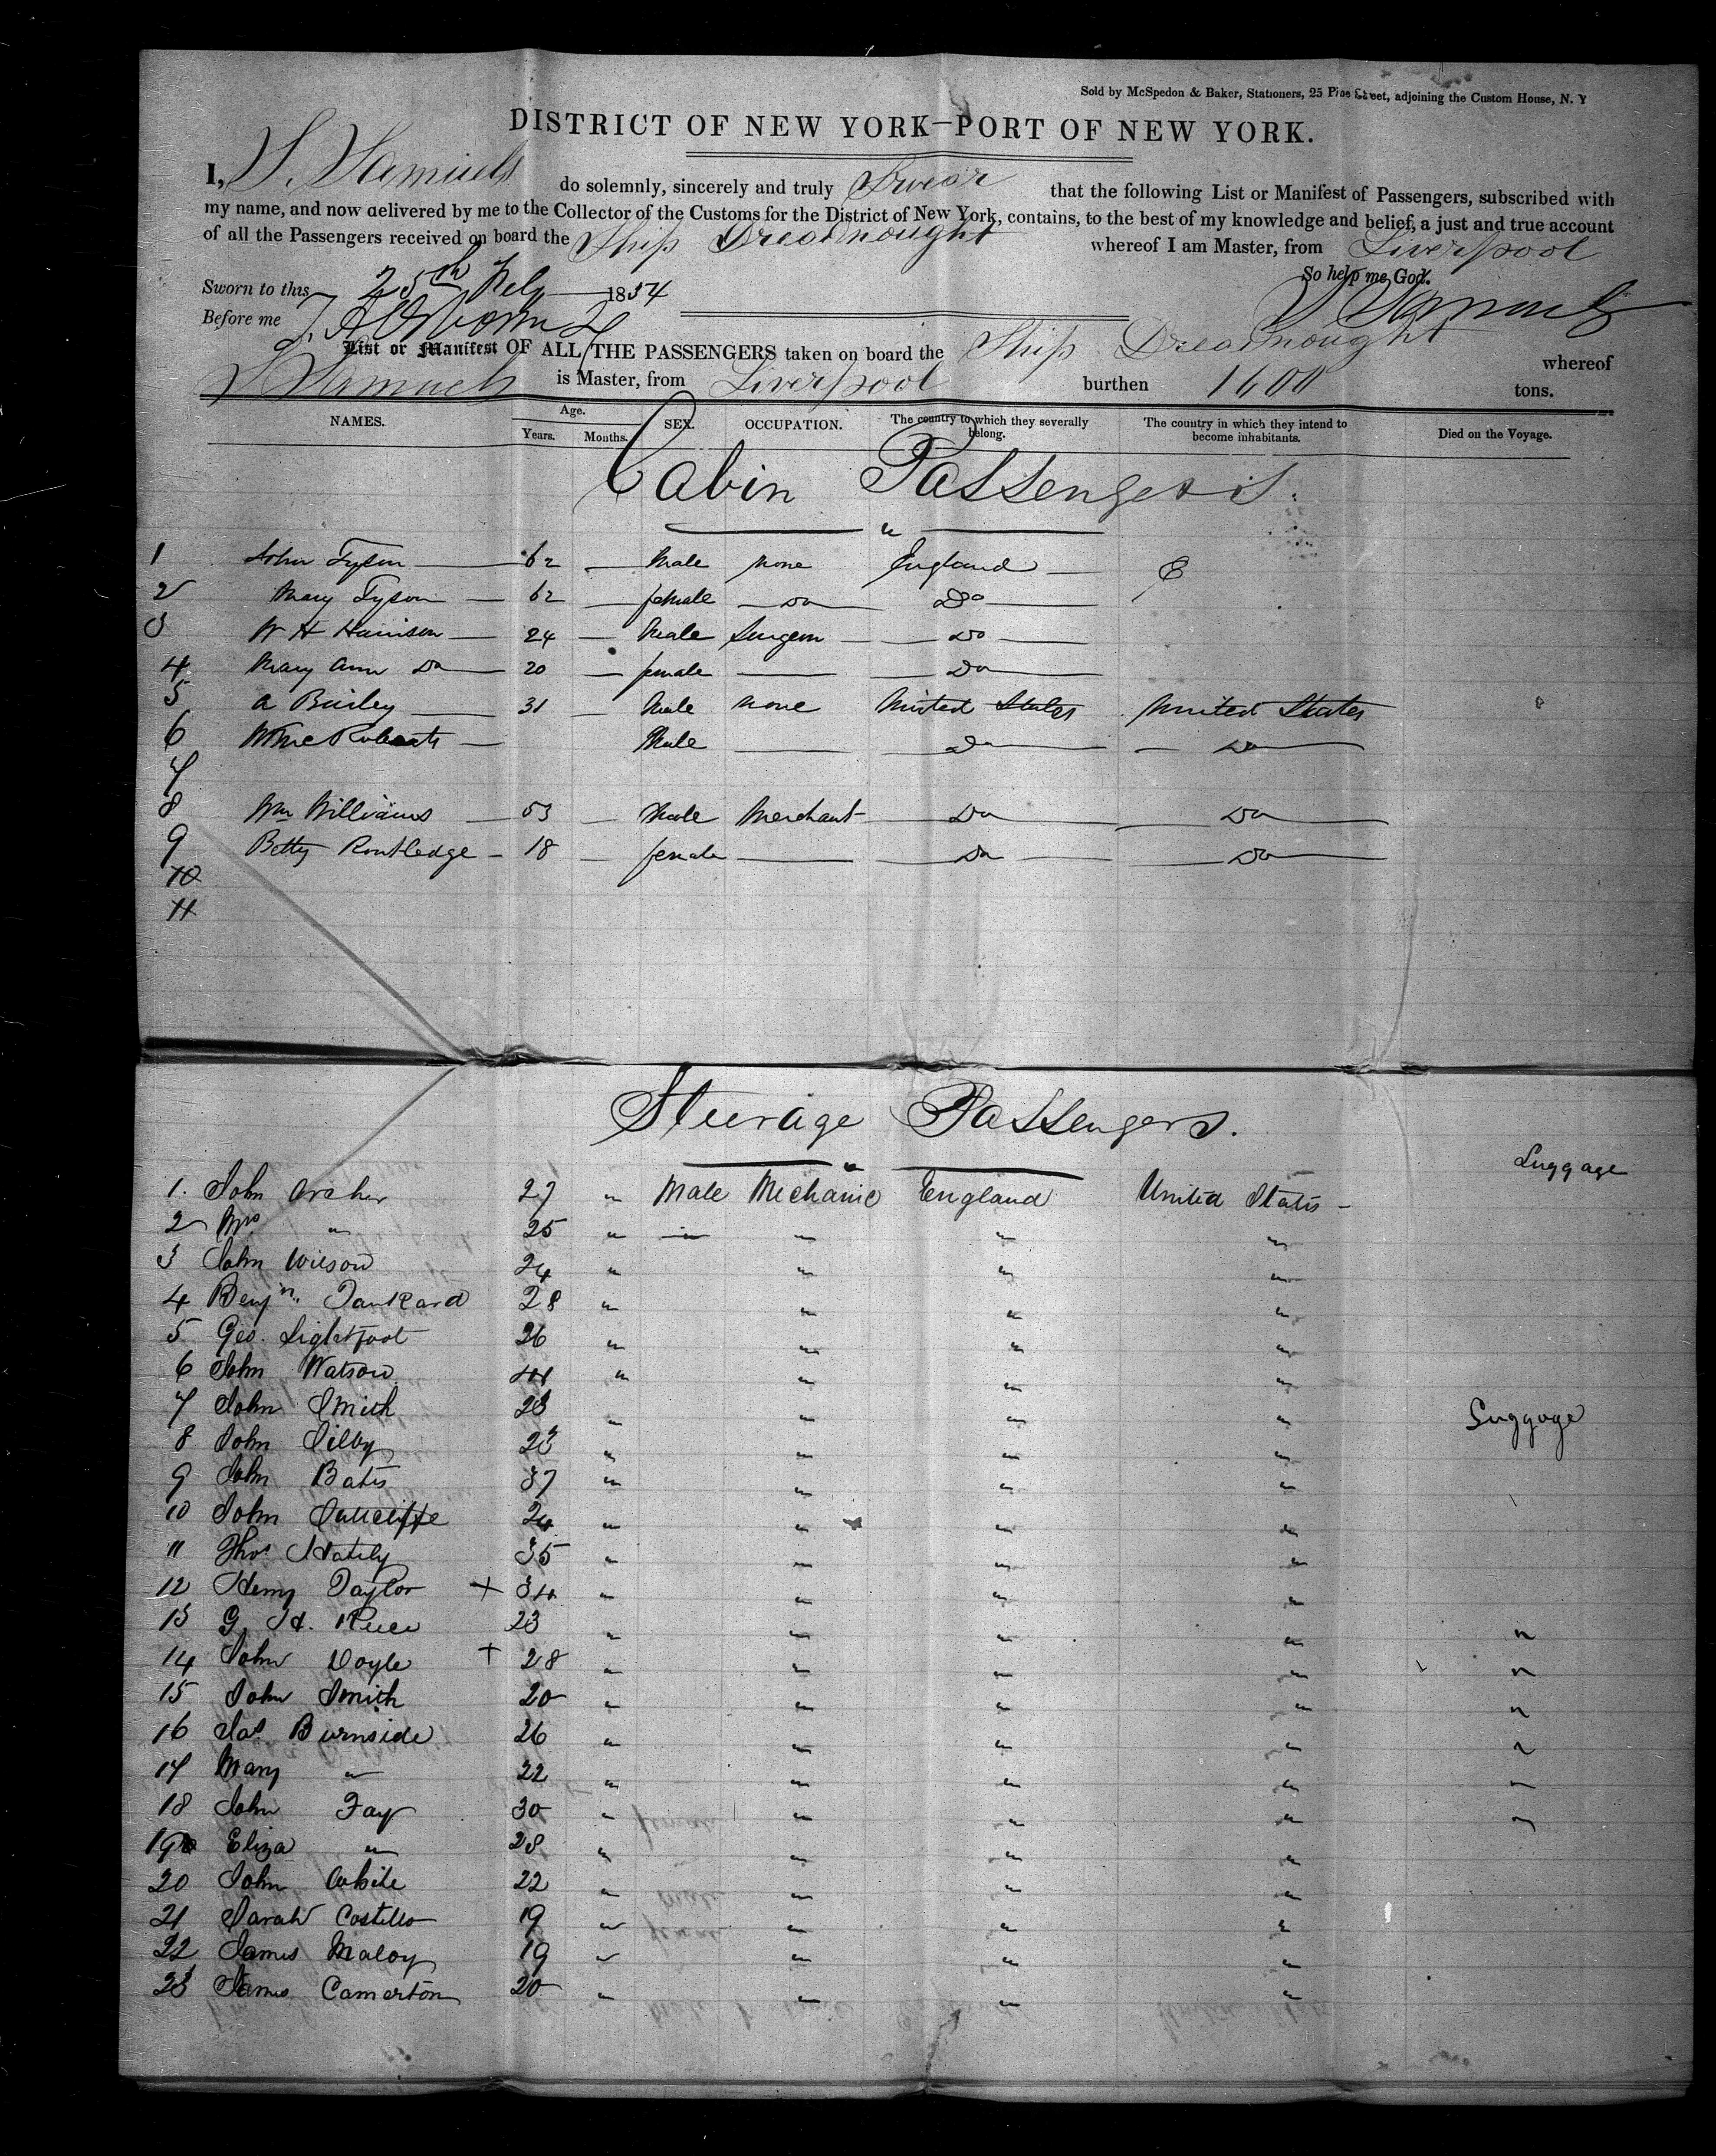 Sold by McSpedon & Baker, Stationers, 25 Pine Street, adjoining the Custom House, N. Y
DISTRICT OF NEW YORK—PORT OF NEW YORK.
I, S. Samuels do solemnly, sincerely and truly Swear that the following List or Manifest of Passengers, subscribed with
my name, and now delivered by me to the Collector of the Customs for the District of New York, contains, to the best of my knowledge and belief, a just and true account
of all the Passengers received on board the Ship Dreadnought whereof I am Master, from Liverpool
So help me God.
Sworn to this 25th Feby 1854 S Samuels
Before me
List or Manifest OF ALL THE PASSENGERS taken on board the Ship Dreadnought whereof
S Samuels is Master, from Liverpool burthen 1400 tons.
NAMES. Age. Years. Months. SEX. OCCUPATION. The country to which they severally belong. The country in which they intend to become inhabitants. Died on the Voyage.
Cabin Passengers.
1 John Tyson 62 Male none England
2 Mary Tyson 62 female Do Do
3 W H Harrison 24 Male Surgeon Do
4 Mary Ann Do 20 female Do
5 A Bailey 31 Male none United States United States
6 Male Do Do
7
8 Wm Williams 53 Male Merchant Do Do
9 Betty Routledge 18 female Do Do
10
11
Steerage Passengers.
Luggage
1. John Archer 27 " Male Mechanic England United States
2 Mrs " 25 " " " " "
3 John Wilson 24 " " " "
4 Benjn. Tankard 28 " " " "
5 Geo. Lightfoot 26 " " " "
6 John Watson " " " "
7 John Smith 23 " " " " Luggage
8 John Silby 23 " " " "
9 John Bates 37 " " " "
10 John Sutcliffe 24 " " " "
11 Thos Hately 35 " " " "
12 Henry Taylor + 34 " " " "
13 G. H. 23 " " " " "
14 John Doyle + 28 " " " " "
15 John Smith 20 " " " " "
16 Jas Burnside 26 " " " " "
17 Mary " 22 " " " " "
18 John Fay 30 " " " " "
19 Eliza " 28 " " " "
20 John White 22 " " " "
21 Sarah Costello 19 " " " "
22 James Maloy 19 " " " "
23 James Camerton 20 " " " "